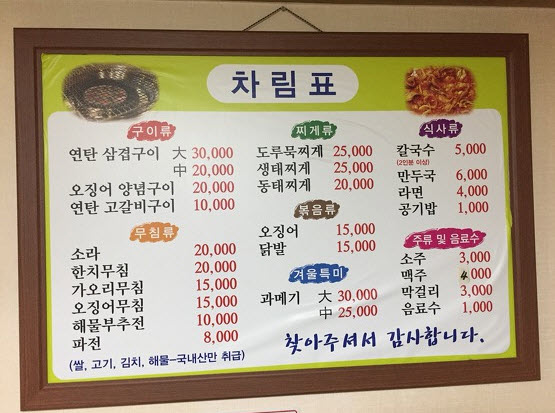 차림표
구이류
연탄 삼겹구이 大 30,000
中 20,000
오징어 양념구이 20,000
연탄 고갈비구이 10,000
무침류
소라 20,000
한치무침 20,000
가오리무침 15,000
오징어무침 15,000
해물부추전 10,000
파전 8,000
(쌀, 고기, 김치, 해물-국내산만 취급)
찌게류
도루묵찌게 25,000
생태찌게 25,000
동태찌게 20,000
볶음류
오징어 15,000
닭발 15,000
겨울특미
과메기 大 30,000
中 25,000
식사류
칼국수 5,000
(2인분 이상)
만두국 6,000
라면 4,000
공기밥 1,000
주류 및 음료수
소주 3,000
맥주 4,000
막걸리 3,000
음료수 1,000
찾아주셔서 감사합니다.